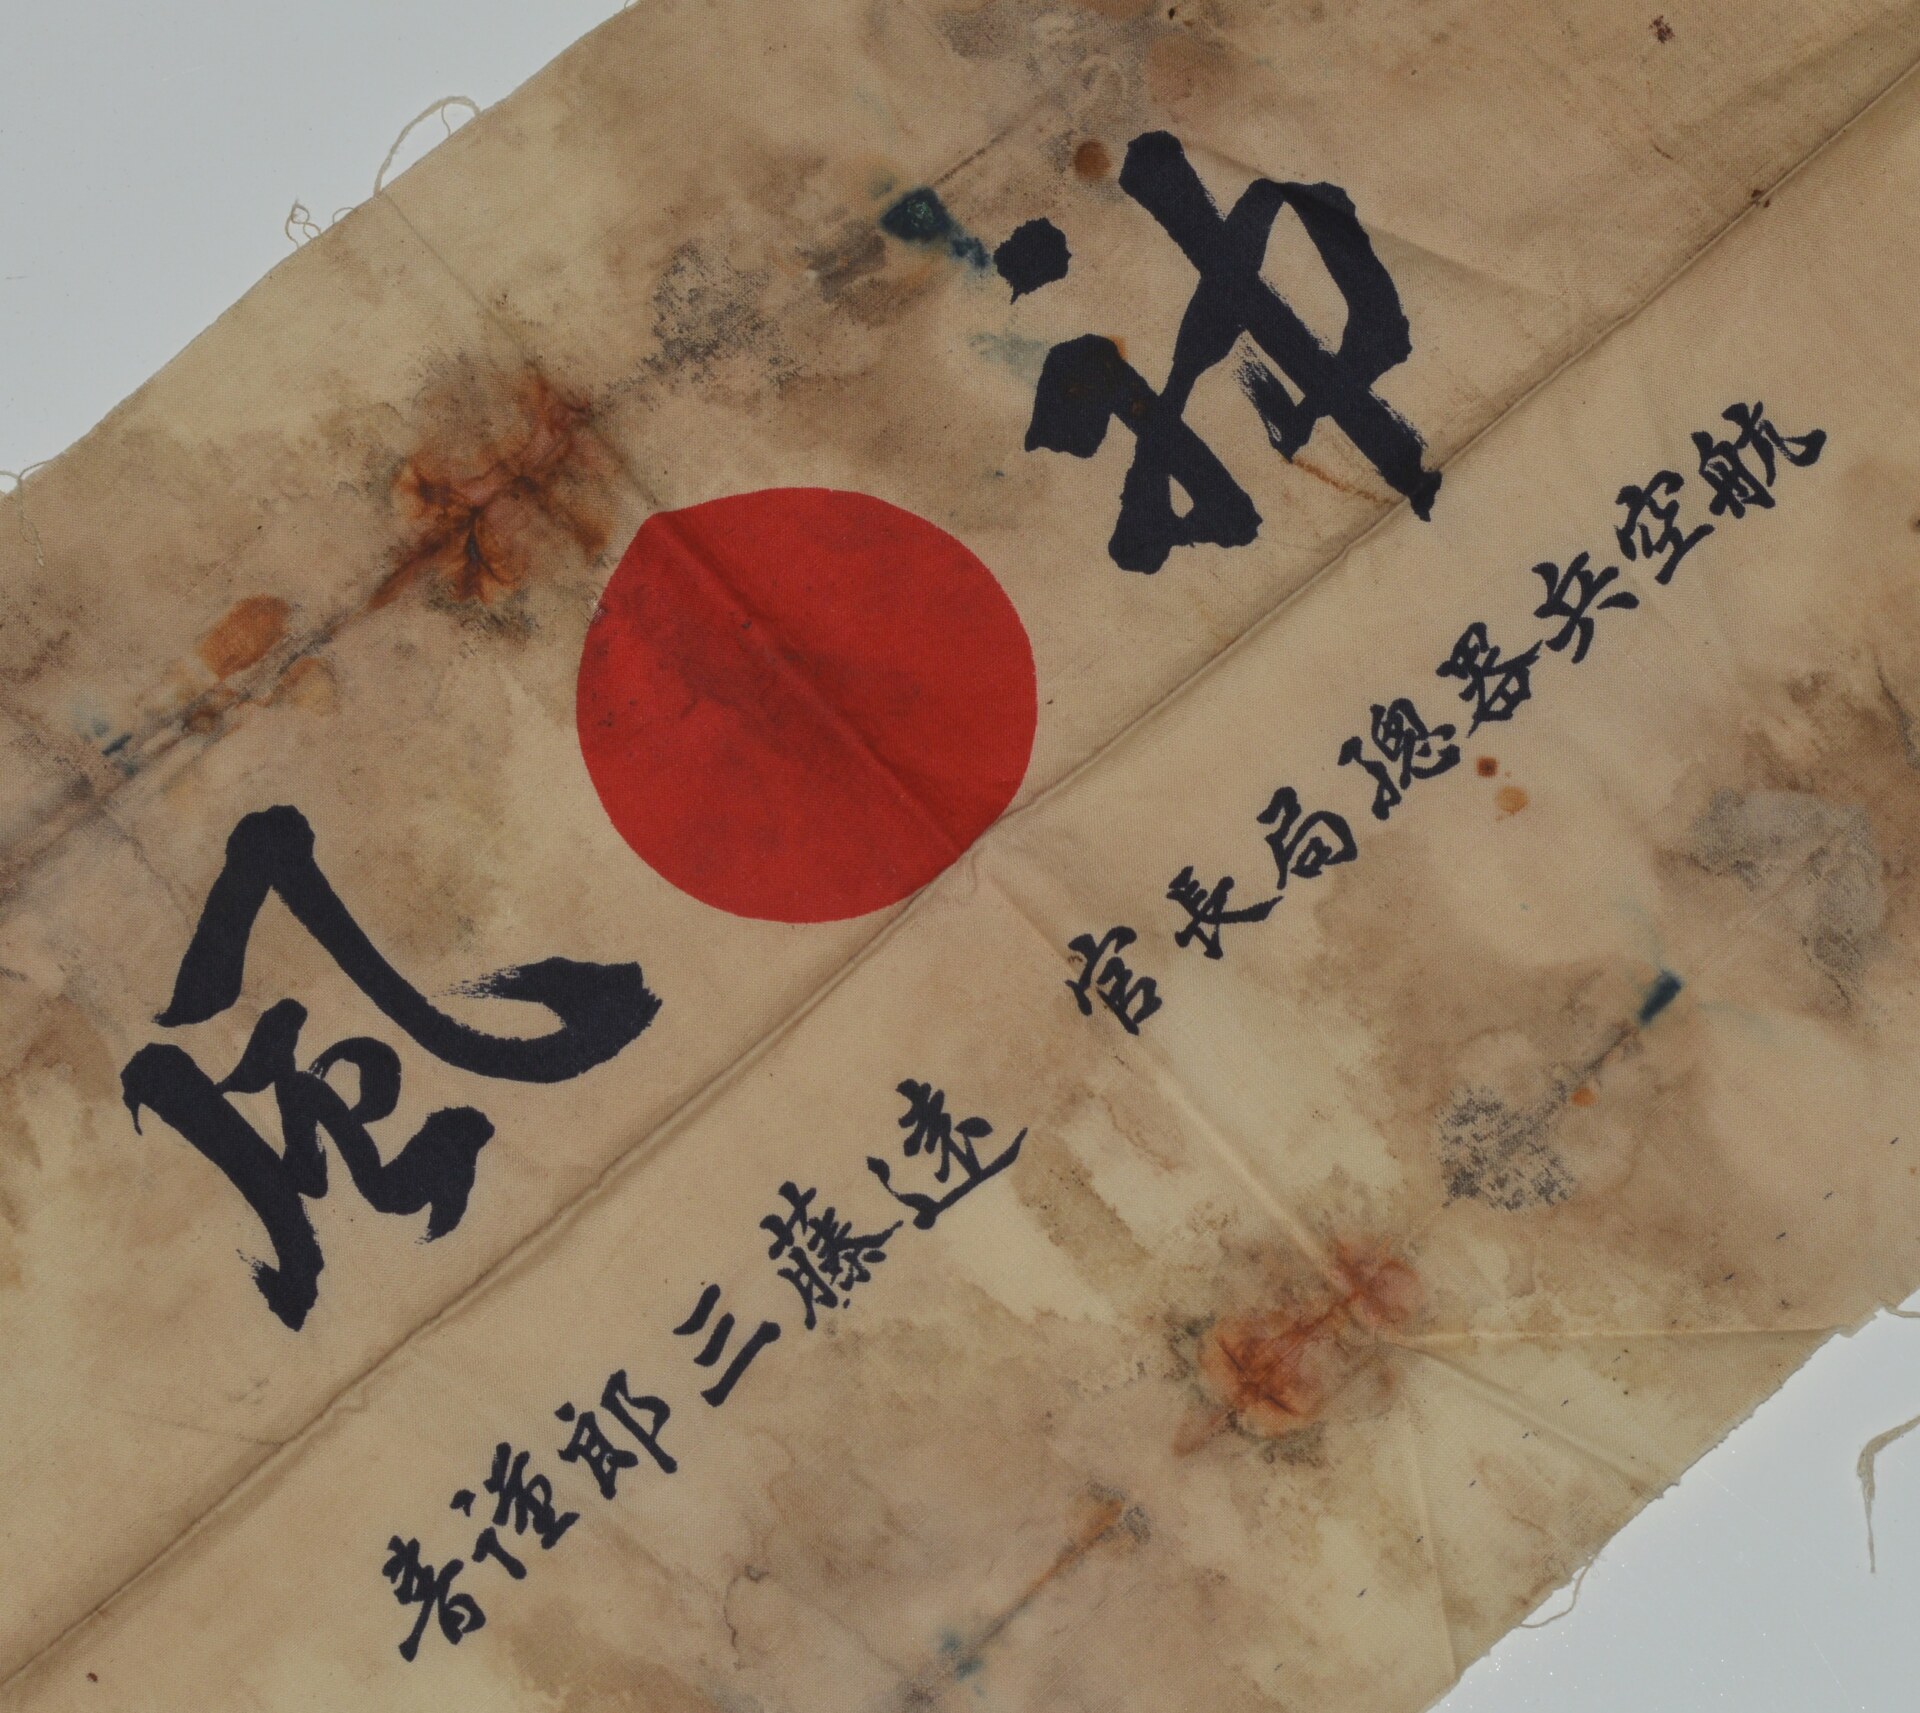 神風
航空兵器總局長官
遠藤三郎謹書